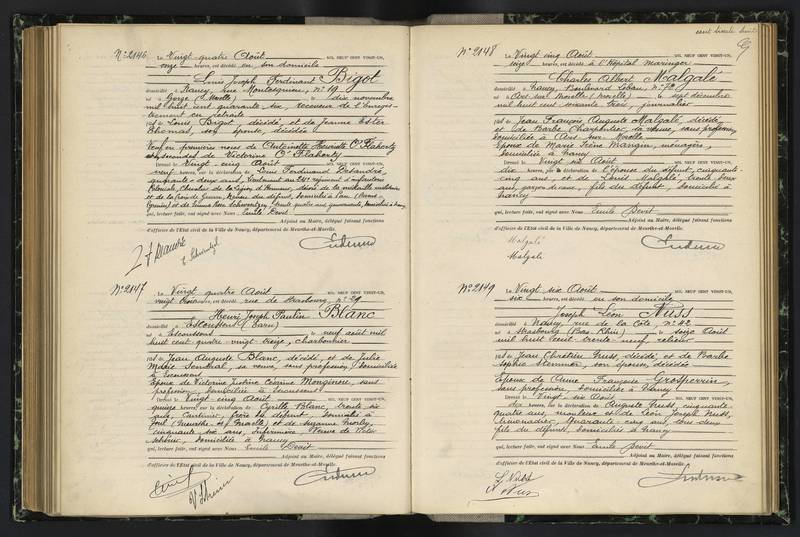 N° 2146
Le Vingt quatre Août MIL NEUF CENT VINGT-UN,
onze heures, est décédé en son domicile
Louis Joseph Ferdinand Bigot
domicilié à Nancy, rue Montesquieu, n° 19
né à Gorze (Moselle) le dix novembre
mil huit cent quarante six, receveur de l'Enregis-
trement en retraite
fils de Louis Bigot, décédé, et de Jeanne Ester
Thomas, son épouse, décédée
Veuf en premières noces de Antoinette Henriette O'Flaherty
et en secondes de Victorine O'Flaherty
Dressé le Vingt cinq Août MIL NEUF CENT VINGT-UN,
neuf heures, sur la déclaration de Louis Ferdinand
quarante deux ans, Lieutenant au régiment d'infanterie
Coloniale, Chevalier de la Légion d'Honneur, décoré de la médaille militaire
et de la Croix de Guerre, neveu du défunt, domicilié à
et de trente quatre ans
qui, lecture faite, ont signé avec Nous Emile Devit
Adjoint au Maire, délégué faisant fonctions
d'officier de l'Etat civil de la Ville de Nancy, département de Meurthe-et-Moselle.
N° 2147
Le Vingt quatre Août MIL NEUF CENT VINGT-UN,
vingt trois heures, est décédé rue de Strasbourg, n° 29
Henri Joseph Paulin Blanc
domicilié à Escoussens (Tarn)
né à Escoussens le neuf août mil
huit cent quatre vingt treize, charbonnier
fils de Jean Auguste Blanc, décédé, et de Julie
Marie, sa veuve, sans profession, domiciliée
à Escoussens
Epoux de Victorine Justine Césarine Monginou, sans
profession, domiciliée à Escoussens
Dressé le Vingt cinq Août MIL NEUF CENT VINGT-UN,
quinze heures, sur la déclaration de Cyrille Blanc, trente six
ans, frère du défunt, domicilié à
Toul (Meurthe et Moselle) et de Suzanne
cinquante six ans, infirmière, Veuve de
domiciliée à Nancy
qui, lecture faite, ont signé avec Nous Emile Devit
Adjoint au Maire, délégué faisant fonctions
d'officier de l'Etat civil de la Ville de Nancy, département de Meurthe-et-Moselle.
cent trente huit
N° 2148
Le Vingt cinq Août MIL NEUF CENT VINGT-UN,
seize heures, est décédé à l'Hôpital Maringer
Charles Albert Malgalé
domicilié à Nancy, Boulevard Lobau, n° 72
né à Ars sur Moselle (Moselle) le 6 septembre
mil huit cent soixante trois, journalier
fils de Jean François Auguste Malgalé, décédé,
et de Barbe Charpentier, sa veuve, sans profession,
domiciliée à Ars sur Moselle
Epoux de Marie Irène Mangin, ménagère,
domiciliée à Nancy
Dressé le Vingt six Août MIL NEUF CENT VINGT-UN,
dix heures, sur la déclaration de l'épouse du défunt, cinquante
cinq ans, et de Malgalé, trente deux
ans, garçon de cave, fils du défunt, domicilié à
Nancy
qui, lecture faite, ont signé avec Nous Emile Devit
Adjoint au Maire, délégué faisant fonctions
d'officier de l'Etat civil de la Ville de Nancy, département de Meurthe-et-Moselle.
Malgalé
Malgalé
N° 2149
Le Vingt six Août MIL NEUF CENT VINGT-UN,
six heures, est décédé en son domicile
Joseph Léon Nuss
domicilié à Nancy, rue de la Côte, n° 42
né à Strasbourg (Bas Rhin) le seize Août
mil huit cent trente neuf, relieur
fils de Jean Chrétien Nuss, décédé, et de Barbe
Sophie Stemmer, son épouse, décédée
Epoux de Anne Françoise Grosperrin,
sans profession, domiciliée à Nancy
Dressé le Vingt six Août MIL NEUF CENT VINGT-UN,
dix heures, sur la déclaration de Auguste Nuss, cinquante
quatre ans, monteur et de Léon Joseph Nuss,
limonadier, quarante cinq ans, tous deux
fils du défunt, domiciliés à Nancy
qui, lecture faite, ont signé avec Nous Emile Devit
Adjoint au Maire, délégué faisant fonctions
d'officier de l'Etat civil de la Ville de Nancy, département de Meurthe-et-Moselle.
Nuss